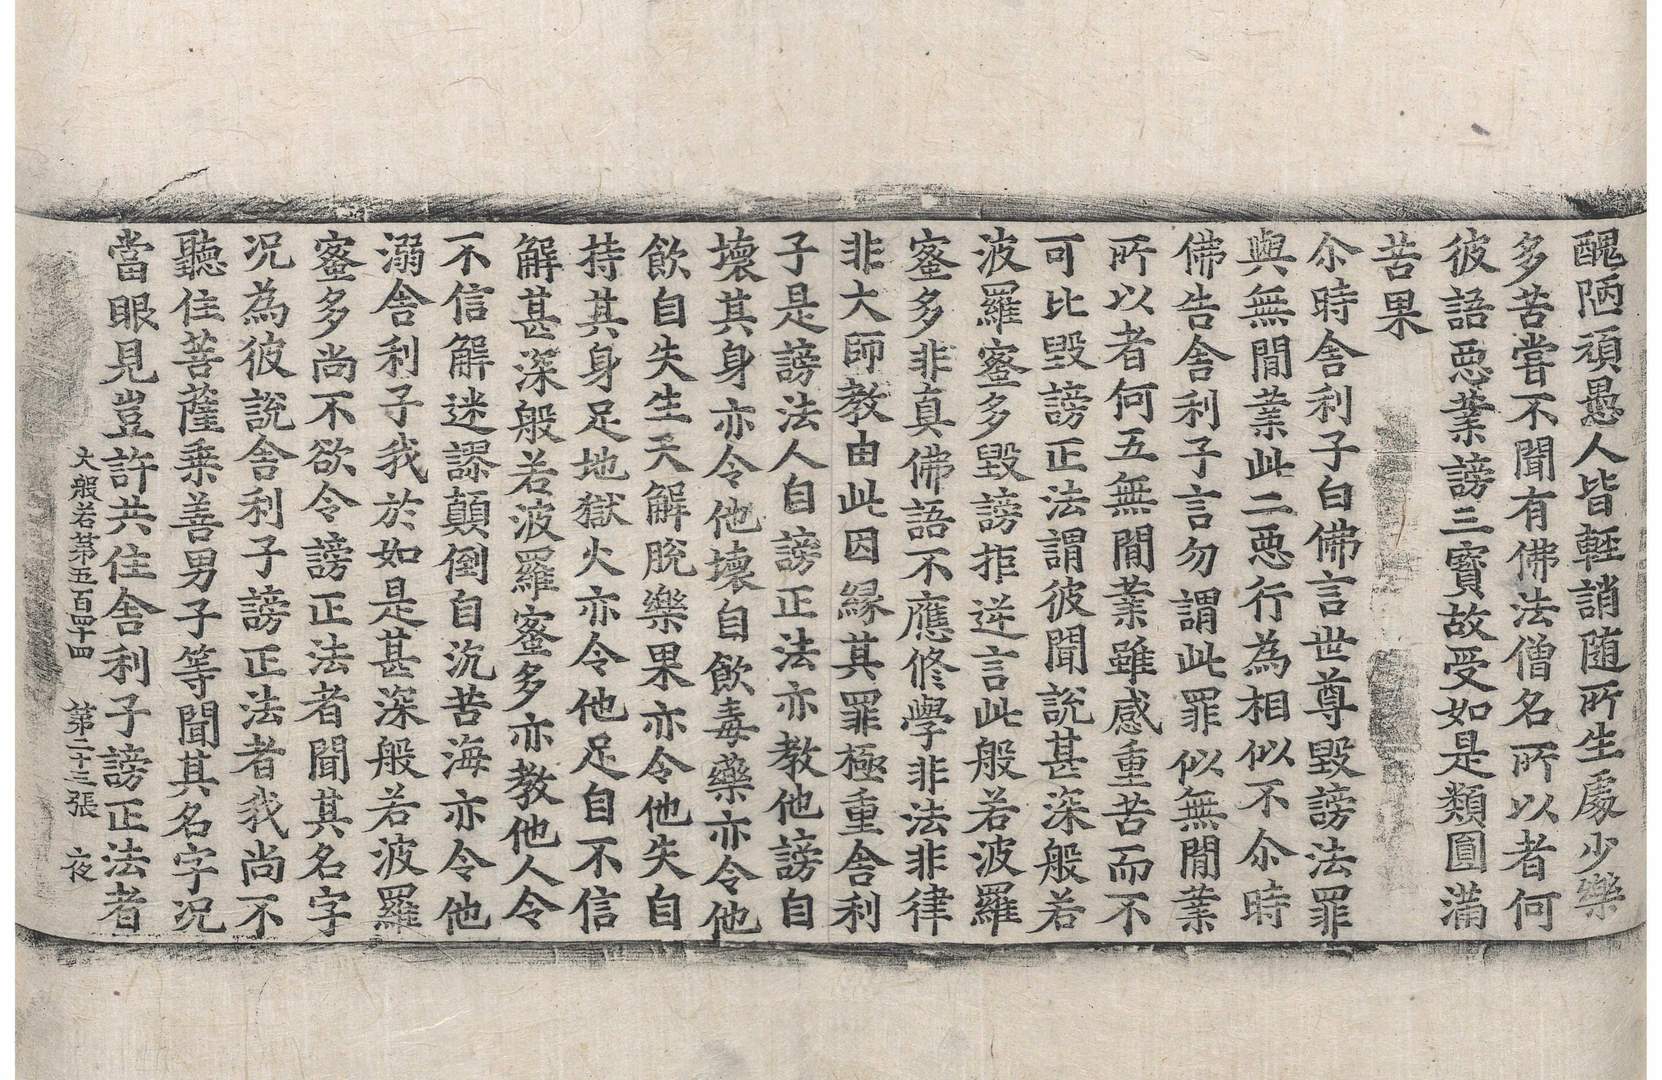 醜陋頑愚人皆輕誚随所生處少樂
多苦嘗不聞有佛法僧名所以者何
彼語惡業謗三寶故受如是類圓滿
苦果
尒時舍利子白佛言世尊毀謗法罪
與無間業此二惡行為相似不尒時
佛告舍利子言勿謂此罪似無間業
所以者何五無間業雖感重苦而不
可比毀謗正法謂彼聞說甚深般若
波羅蜜多毀謗拒逆言此般若波羅
蜜多非真佛語不應修學非法非律
非大師教由此因緣其罪極重舍利
子是謗法人自謗正法亦教他謗自
壞其身亦令他壞自飲毒藥亦令他
飲自失生天解脫樂果亦令他失自
持其身足地獄火亦令他足自不信
解甚深般若波羅蜜多亦教他人令
不信解迷謬顛倒自沉苦海亦令他
溺舍利子我於如是甚深般若波羅
蜜多尚不欲令謗正法者聞其名字
况為彼說舍利子謗正法者我尚不
聽住菩薩乘善男子等聞其名字况
當眼見豈許共住舍利子謗正法者
大般若第五百四十四 第二十三張 夜